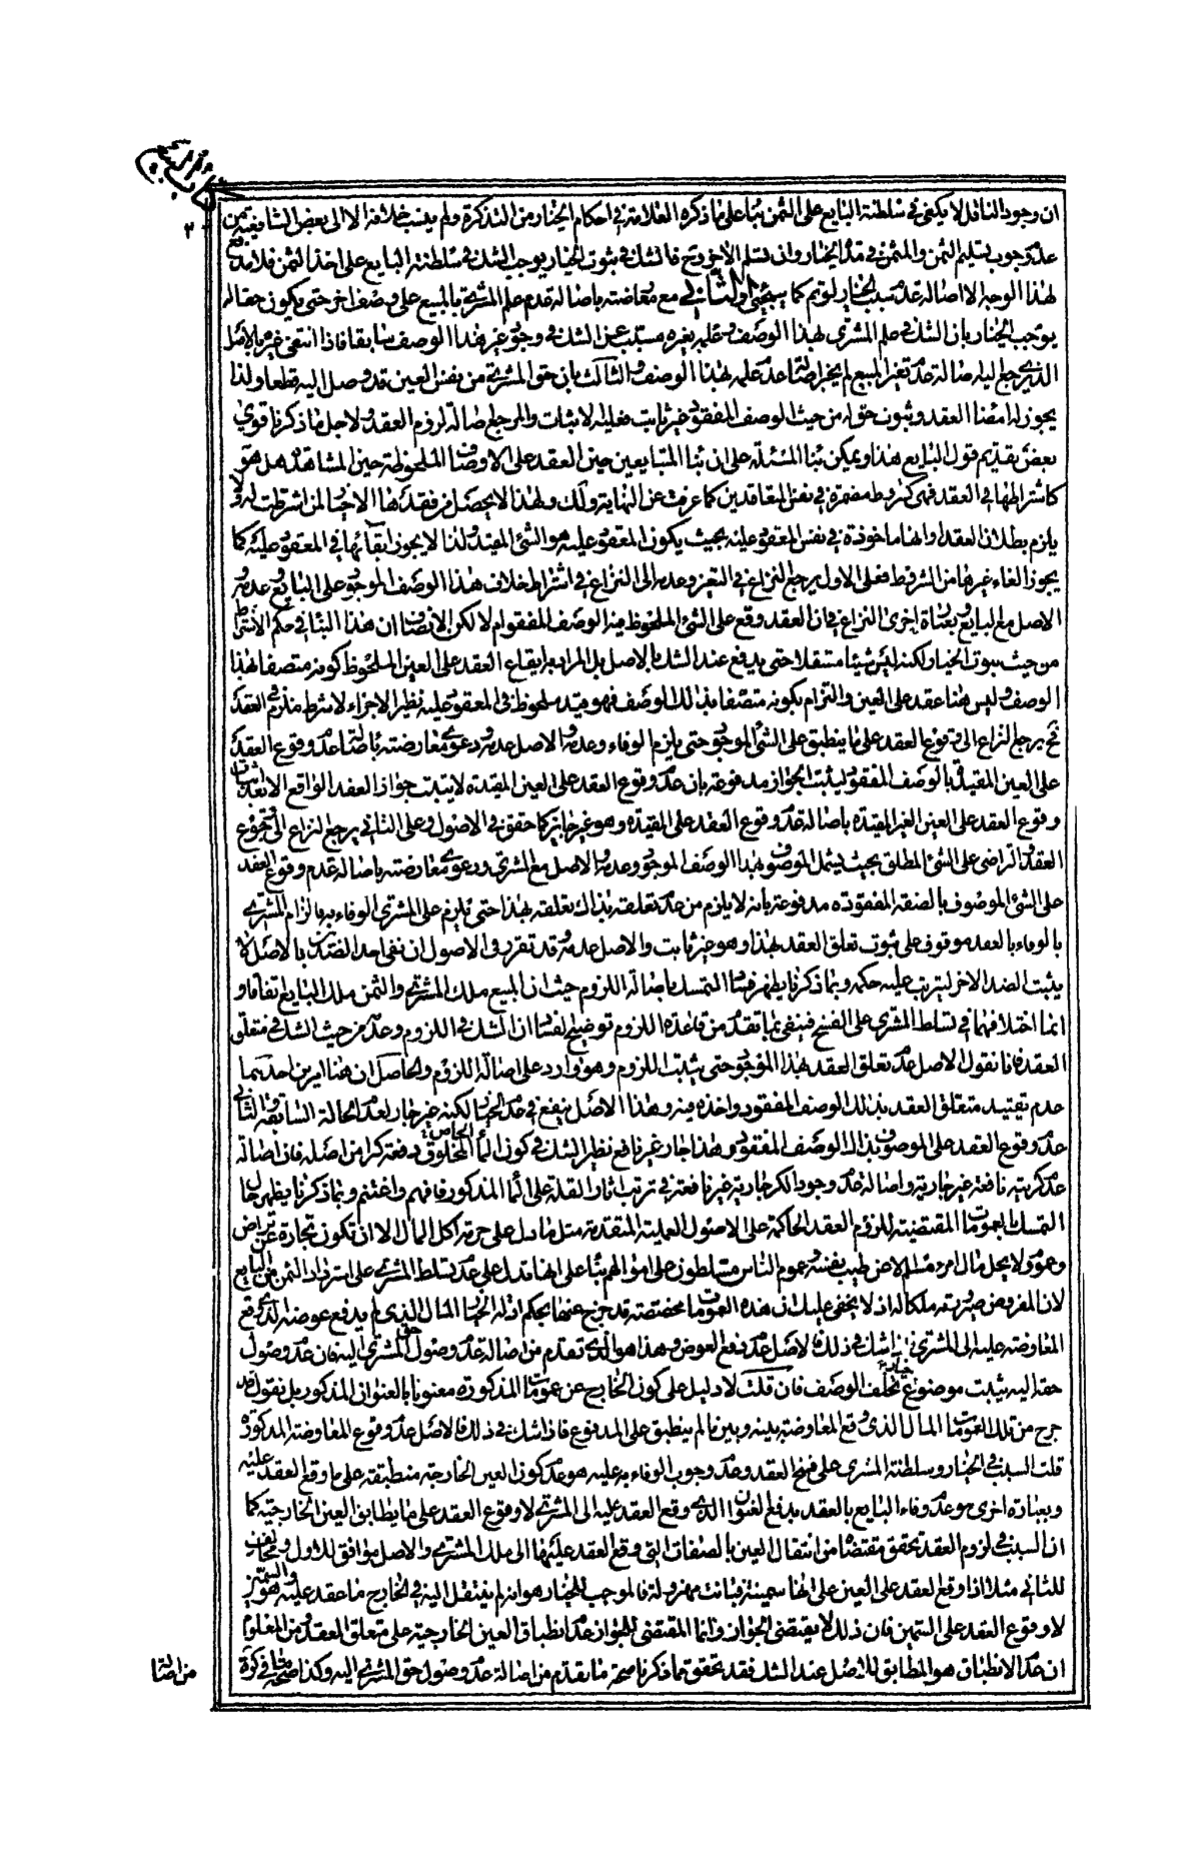 كتاب البيع
ان وجود الناقل لا يكفي في سلطنة البايع على الثمن بناء على ما ذكره العلامة في احكام الخيار من التذكرة ولم ينسب خلافه الا الى بعض الشافعية من
عدم وجوب تسليم الثمن والمثمن في مدة الخيار وان تسلم الاخر وح فالشك في ثبوت الخيار يوجب الشك في سلطنة البايع على اخذ الثمن فلا مدفع
لهذا الوجه الا اصالة عدم سبب الخيار لو تم كما سيجئ والثاني مع معارضته باصالة عدم علم المشتري بالمبيع على وصف اخر حتى يكون حقا له
يوجب الخيار بان الشك في علم المشتري بهذا الوصف وعلمه بغيره مسبب عن الشك في وجود غير هذا الوصف سابقا فاذا انتفى غيره بالاصل
الذي يرجع اليه اصالة عدم تغير المبيع لم يجر اصالة عدم علمه بهذا الوصف والثالث بان حق المشتري من نفس العين قد وصل اليه قطعا ولذا
يجوز له امضاء العقد وثبوت حق له من حيث الوصف المفقود غير ثابت فعليه الاثبات والمرجع اصالة لزوم العقد ولاجل ما ذكرنا قوى
بعض تقديم قول البايع هذا ويمكن بناء المسئلة على ان بناء المتبايعين حين العقد على الاوصاف الملحوظة حين المشاهدة هل هو
كاشتراطها في العقد فهي كشروط مضمرة في نفس المتعاقدين كما عرفت عن النهاية ولك ولهذا لا يحصل من فقدها الا الخيار لمن اشترطت له ولا
يلزم بطلان العقد او انها ماخوذة في نفس المعقود عليه بحيث يكون المعقود عليه هو الشئ المقيد ولذا لا يجوز الغائها في المعقود عليه كما
يجوز الغاء غيرها من الشروط فعلى الاول يرجع النزاع في التغير وعدمه الى النزاع في اشتراط خلاف هذا الوصف الموجود على البايع وعدمه و
الاصل مع البايع وبعبارة اخرى النزاع في ان العقد وقع على الشئ الملحوظ فيه الوصف المفقود ام لا لكن الانصاف ان هذا البناء في حكم الاشتراط
من حيث ثبوت الخيار ولكنه ليس شيئا مستقلا حتى يدفع عند الشك بالاصل بل المراد به ايقاع العقد على العين الملحوظ كونه متصفا بهذا
الوصف وليس هنا عقد على العين والتزام بكونه متصفا بذلك الوصف فهو قيد ملحوظ في المعقود عليه نظير الاجزاء لا شرط ملزم في العقد
فح يرجع النزاع الى وقوع العقد على ما ينطبق على الشئ الموجود حتى يلزم الوفاء وعدمه والاصل عدمه ودعوى معارضته باصالة عدم وقوع العقد
على العين المقيدة بالوصف المفقود ليثبت الجواز مدفوعة بان عدم وقوع العقد على العين المقيدة لا يثبت جواز العقد الواقع الا بعد اثبات
وقوع العقد على العين الغير المقيدة باصالة عدم وقوع العقد على المقيدة وهو غير جايز كما حقق في الاصول وعلى الثاني يرجع النزاع الى وقوع
العقد والتراضى على الشئ المطلق بحيث يشمل الموصوف بهذا الوصف الموجود وعدمه والاصل مع المشتري ودعوى معارضته باصالة عدم وقوع العقد
على الشئ الموصوف بالصفة المفقودة مدفوعة بانه لا يلزم من عدم تعلقه بذاك تعلقه بهذا حتى يلزم على المشتري الوفاء به فالزام المشتري
بالوفاء بالعقد موقوف على ثبوت تعلق العقد بهذا وهو غير ثابت والاصل عدمه وقد تقرر في الاصول ان نفى احد الضدين بالاصل لا
يثبت الضد الاخر ليترتب عليه حكمه وبما ذكرنا يظهر فساد التمسك باصالة اللزوم حيث ان المبيع ملك المشتري والثمن ملك البايع اتفاقا و
انما اختلافهما في تسلط المشتري على الفسخ فينفى بما تقدم من قاعدة اللزوم توضيح الفساد ان الشك في اللزوم وعدمه من حيث الشك في متعلق
العقد فانا نقول الاصل عدم تعلق العقد بهذا الموجود حتى يثبت اللزوم وهو وارد على اصالة اللزوم والحاصل ان هنا امرين احدهما
عدم تقييد متعلق العقد بذلك الوصف المفقود واخذه فيه وهذا الاصل ينفع في عدم الخيار لكنه غير جار لعدم الحالة السابقة والثاني
عدم وقوع العقد على الموصوف بذاك الوصف المفقود وهذا جار غير نافع نظير الشك في كون الماء الخاص المخلوق دفعة كرا من اصله فان اصالة
عدم كريته نافعة غير جارية واصالة عدم وجود الكر جارية غير نافعة في ترتب اثار القلة على الماء المذكور فافهم واغتنم وبما ذكرنا يظهر حال
التمسك بالعمومات المقتضية للزوم العقد الحاكمة على الاصول العملية المتقدمة مثل ما دل على حرمة اكل المال الا ان تكون تجارة عن تراض
وعموم لا يحل مال امرء مسلم الا عن طيب نفسه وعموم الناس مسلطون على اموالهم بناء على انها تدل على عدم تسلط المشتري على استرداد الثمن من البايع
لان المفروض صيرورته ملكا له اذ لا يخفى عليك ان هذه العمومات مخصصة قد خرج عنها بحكم ادلة الخيار المال الذي لم يدفع عوضه الذي وقع
المعاوضة عليه الى المشتري فاذا شك في ذلك فالاصل عدم دفع العوض وهذا هو الذي تقدم من اصالة عدم وصول حق المشتري اليه فان عدم وصول
حقه اليه يثبت موضوع خيار تخلف الوصف فان قلت لا دليل على كون الخارج عن عمومات المذكورة معنونا بالعنوان المذكور بل نقول قد
خرج من تلك العمومات المال الذي وقع المعاوضة بينه وبين ما لم ينطبق على المدفوع فاذا شك في ذلك فالاصل عدم وقوع المعاوضة المذكورة
قلت السبب في الخيار وسلطنة المشتري على فسخ العقد وعدم وجوب الوفاء به عليه هو عدم كون العين الخارجية منطبقة على ما وقع العقد عليه
وبعبارة اخرى هو عدم وفاء البايع بالعقد بدفع العنوان الذي وقع العقد عليه الى المشتري لا وقوع العقد على ما يطابق العين الخارجية كما
ان السبب في لزوم العقد تحقق مقتضاه من انتقال العين بالصفات التي وقع العقد عليها الى ملك المشتري والاصل موافق للاول ومخالف
للثاني مثلا اذا وقع العقد على العين على انها سمينة فبانت مهزولة فالموجب للخيار هو انه لم ينتقل اليه في الخارج ما عقد عليه وهو السمين
لا وقوع العقد على السمين فان ذلك لا يقتضى الجواز وانما المقتضى للجواز عدم انطباق العين الخارجية على متعلق العقد ومن المعلوم
ان عدم الانطباق هو المطابق للاصل عند الشك فقد تحقق مما ذكرنا صحة ما تقدم من اصالة عدم وصول حق المشتري اليه وكذا صحة ما في كرة
من اصالة